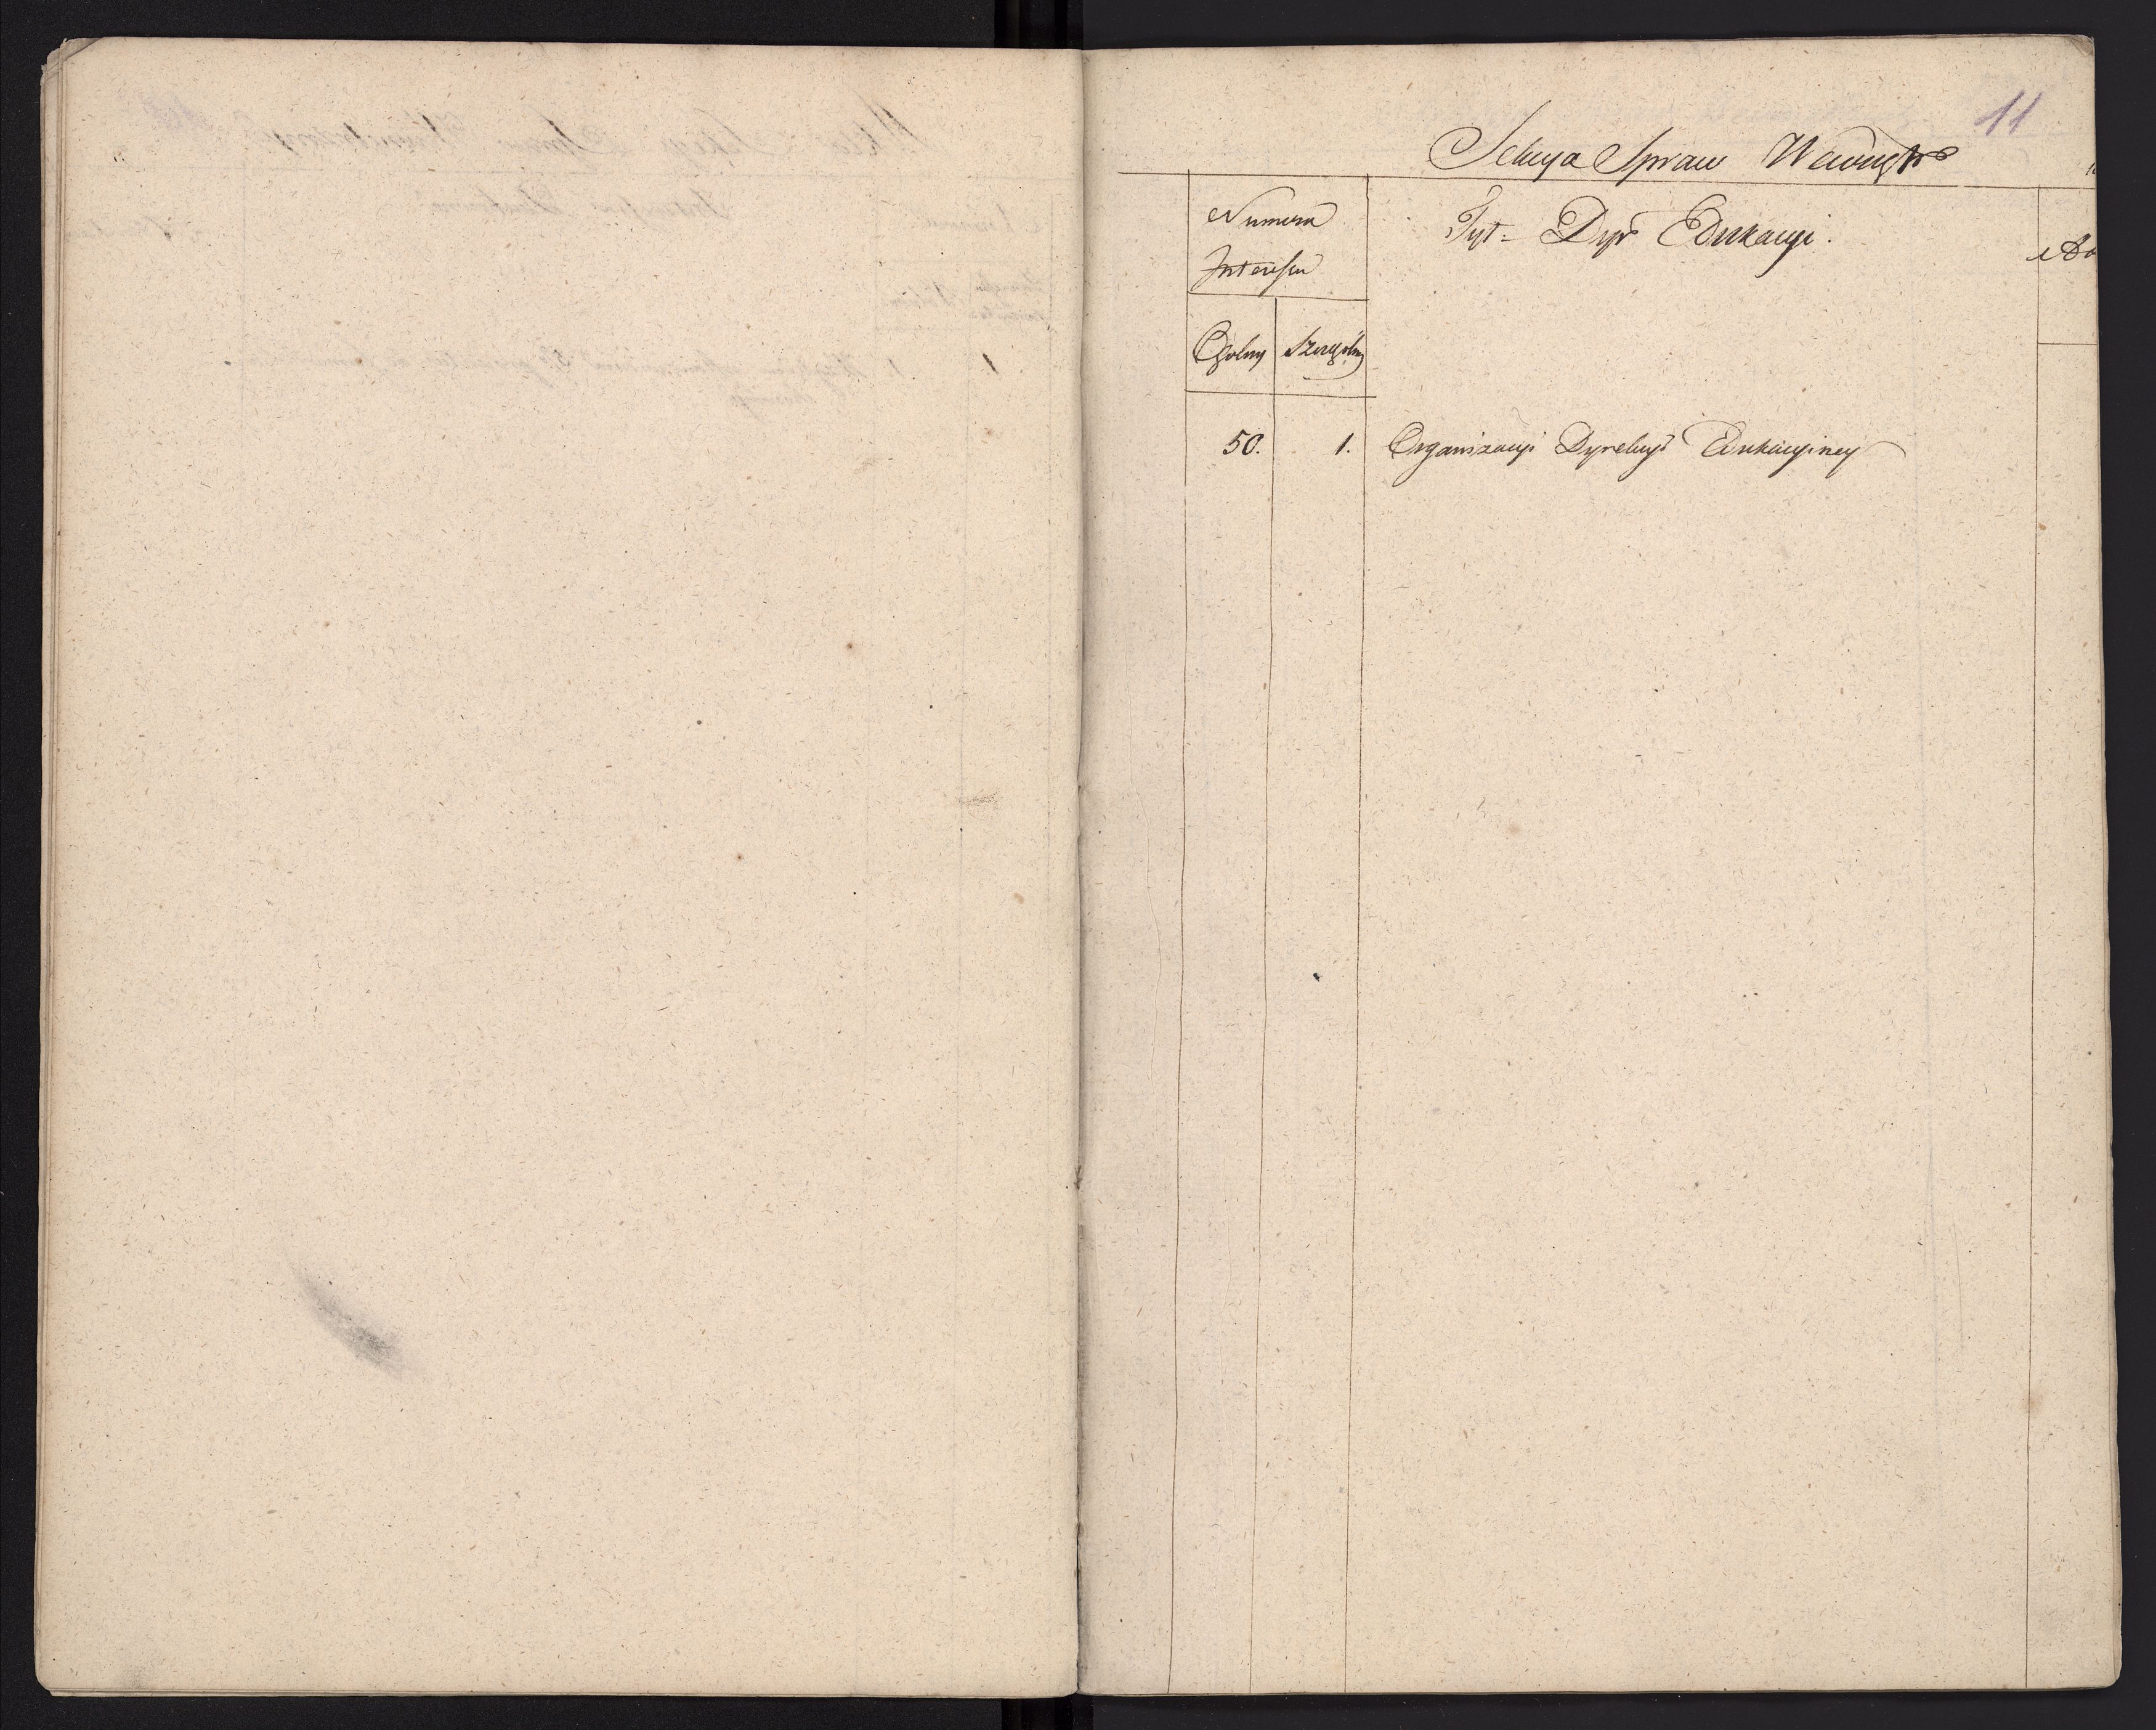 11
Sekcya Spraw Wewnętr
Numera
Interessu
Tyt- Dyr Edukacyi.
Ogolny Szczegolny
50. 1. Organizacyi Dyrekcyi Edukacyiney